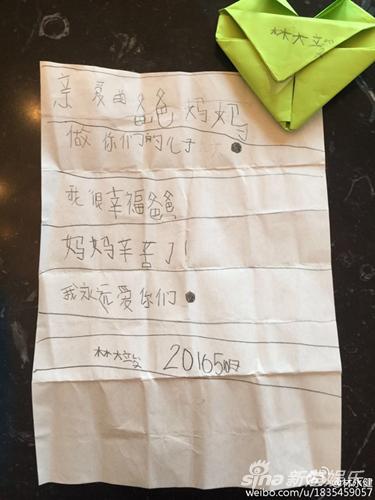 林大竣
亲爱的爸爸妈妈
做你们的儿子
我很幸福爸爸
妈妈辛苦了!
我永远爱你们
林大竣 20165
sina新浪娱乐
@林永健
weibo.com/u/1835459057